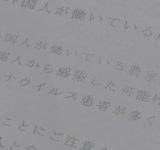 外国人が働いている
国人が働いている農家
国人から感染した可能性
ナウイルス患者が多く
ことにご注意く